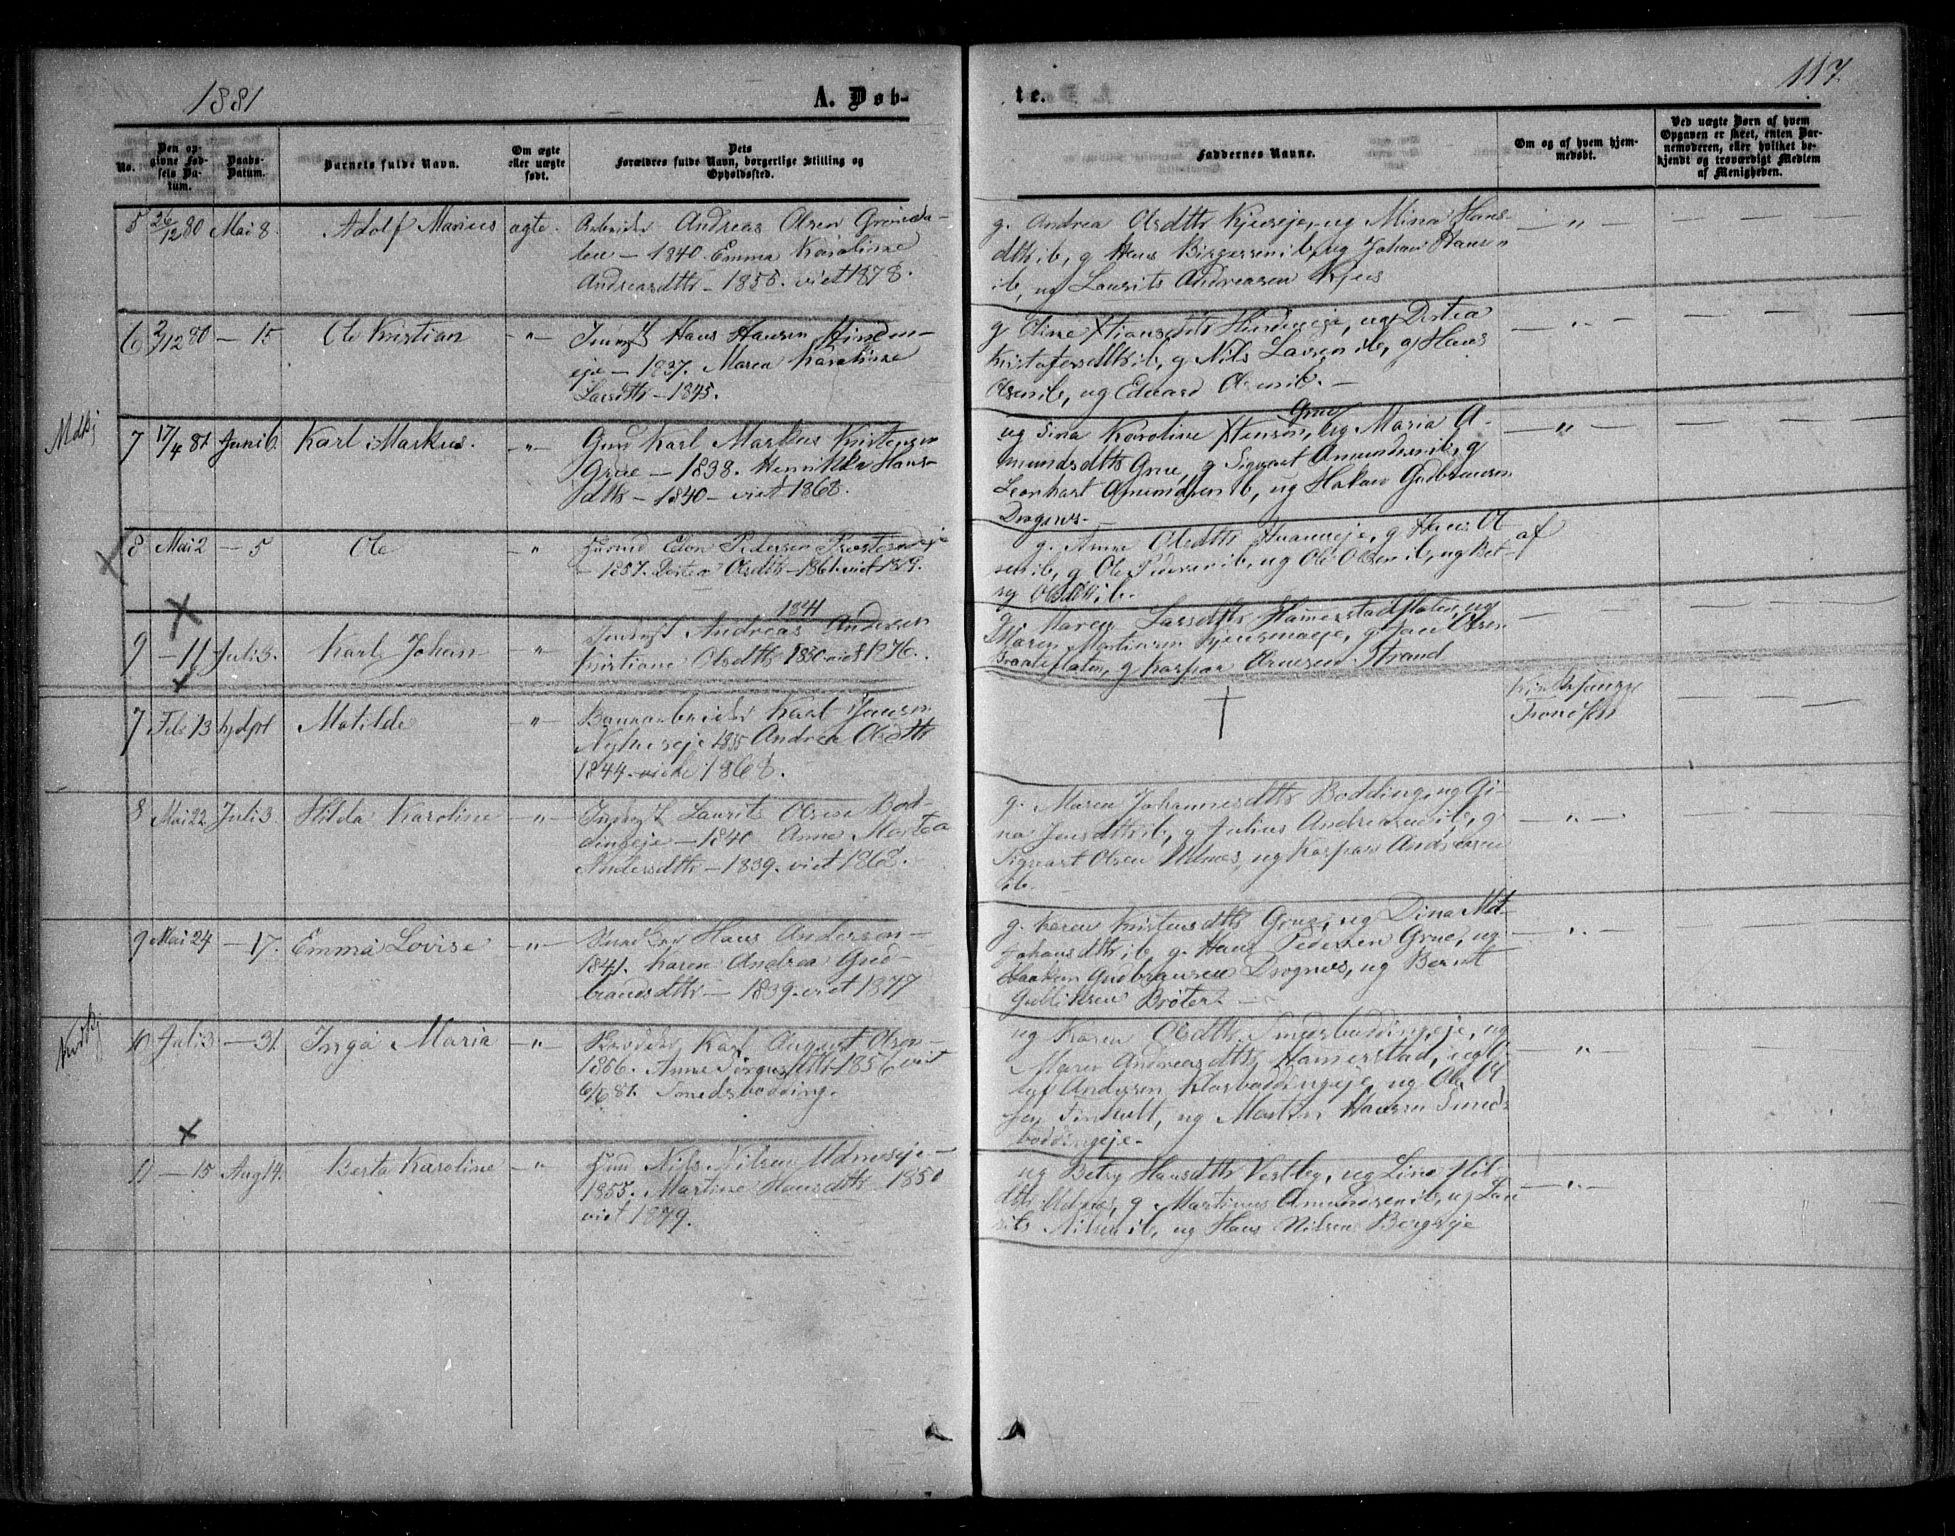 1881
A. Døb-
te.
117.
No.
Den op-
givne Fød-
sels Da-
tum.
Daabs-
Datum.
Barnets fulde Navn.
Om ægte
eller uægte
født.
Dets
Forældres fulde Navn, borgerlige Stilling og
Opholdssted.
Faddernes Navne.
Om og af hvem hjem-
medøbt.
Ved uægte Børn af hvem
Opgaven er skeet, enten Bar-
nemoderen, eller hvilket be-
kjendt og troværdigt Medlem
af Menigheden.
5 26/12 80 Mai 8. Adolf Marius ægte. Arbeider Andreas Olsen
1840. Emma Karolinne
Andreasdttr - 1855. viet 1878.
g. Andrea Olsdttr ug Mina Hans-
dttr ib, g Hans Birgersen ib, ug Johan Hansen
ib, ug Laurits Andreasen Kjus
6 2/12 80 - 15 Ole Kristian - " - Hans Hansen
eje - 1837. Maren Karolinne
Larsdttr - 1845.
g Oline ug Dortea
Kristofersdttr ib, g Nils Larsen ib, g Hans
Olsen ib, ug Edvard Olsen ib. -
7 17/4 81. Juni 6. Karl Markus. - " - Gmd Karl Markus Kristensen
Grue - 1838. Henrikka Hans-
dttr - 1840 - viet 1868.
Grue
ug Sina Karoline ug Maria A-
mundsdttr Grue, g Sigvart Amundsen ib, g
Leonhart Amundsen ib, ug Hakon Gudbransen
Drognes. -
8 Mai 2 - 5 Ole - " - Pedersen
- 1857. Dortea Olsdttr - 1861. viet 1879.
g. Anne Olsdttr g Hans Ol-
sen ib, g Ole Pedersen ib, ug Ole Olsen ib, ug Bet-
sy Olsdttr ib.
af
9 - 11 Juli 3. Karl Johan - " - Andreas Andersen
1841
Kristiane Olsdttr 1850. viet 1876.
g Maren Larsdttr Hamerstadflaten, ug
Maren Martinsen g Jan Olsen
Braateflaten, g Kaspar Arnesen Strand
7 Feb 13 hjdpt Matilde - " - Banearbeider Karl Jansen
1835 Andrea Olsdttr
1844. viede 1868.
†
8 Mai 22 Juli 3 Hilda Karoline - " - Laurits Olsen Bod-
dingeje - 1840 Anne Martea
Andersdttr - 1839. viet 1868.
g. Maren Johannesdttr Bodding, ug Gi-
na Jensdttr ib, g Julius Andreasen ib, g
Sigvart Olsen Udnes, ug Kaspar Andreasen
ib.
9 Mai 24 - 17. Emma Lovise - " - Hans Andersen -
1841. Karen Andrea Gud-
brandsdttr - 1839. viet 1877
g. Karen Kristensdttr Grue, ug Dina Mat-
Johansdttr ib, g. Hans Pedersen Grue, ug
Haakon Gudbransen Drognes, ug Bernt
Gulliksen Brøter. -
10 Juli 3 - 31. Inga Maria - " - Karl August Olsen -
1856. Anne 1856 viet
6/6 81. Smedsbodding.
ug Karen Olsdttr Smedsboddingeje, ug
Maren Andreasdttr Hamerstad, ug
Andersen Klosboddingeje, ug Ole Ol-
sen ug Martin Hansen Smeds-
boddingeje. -
11 - 15 Aug 14. Berta Karoline - " - Nils Nilsen Udneseje -
1855. Martine Hansdttr 1850
viet 1879.
ug Betsy Hansdttr Vestby, ug Lina Nils-
dttr Udnes, g Martinus Amundsen ib, ug Lau-
rits Nilsen ib, ug Hans Nilsen Bergseje